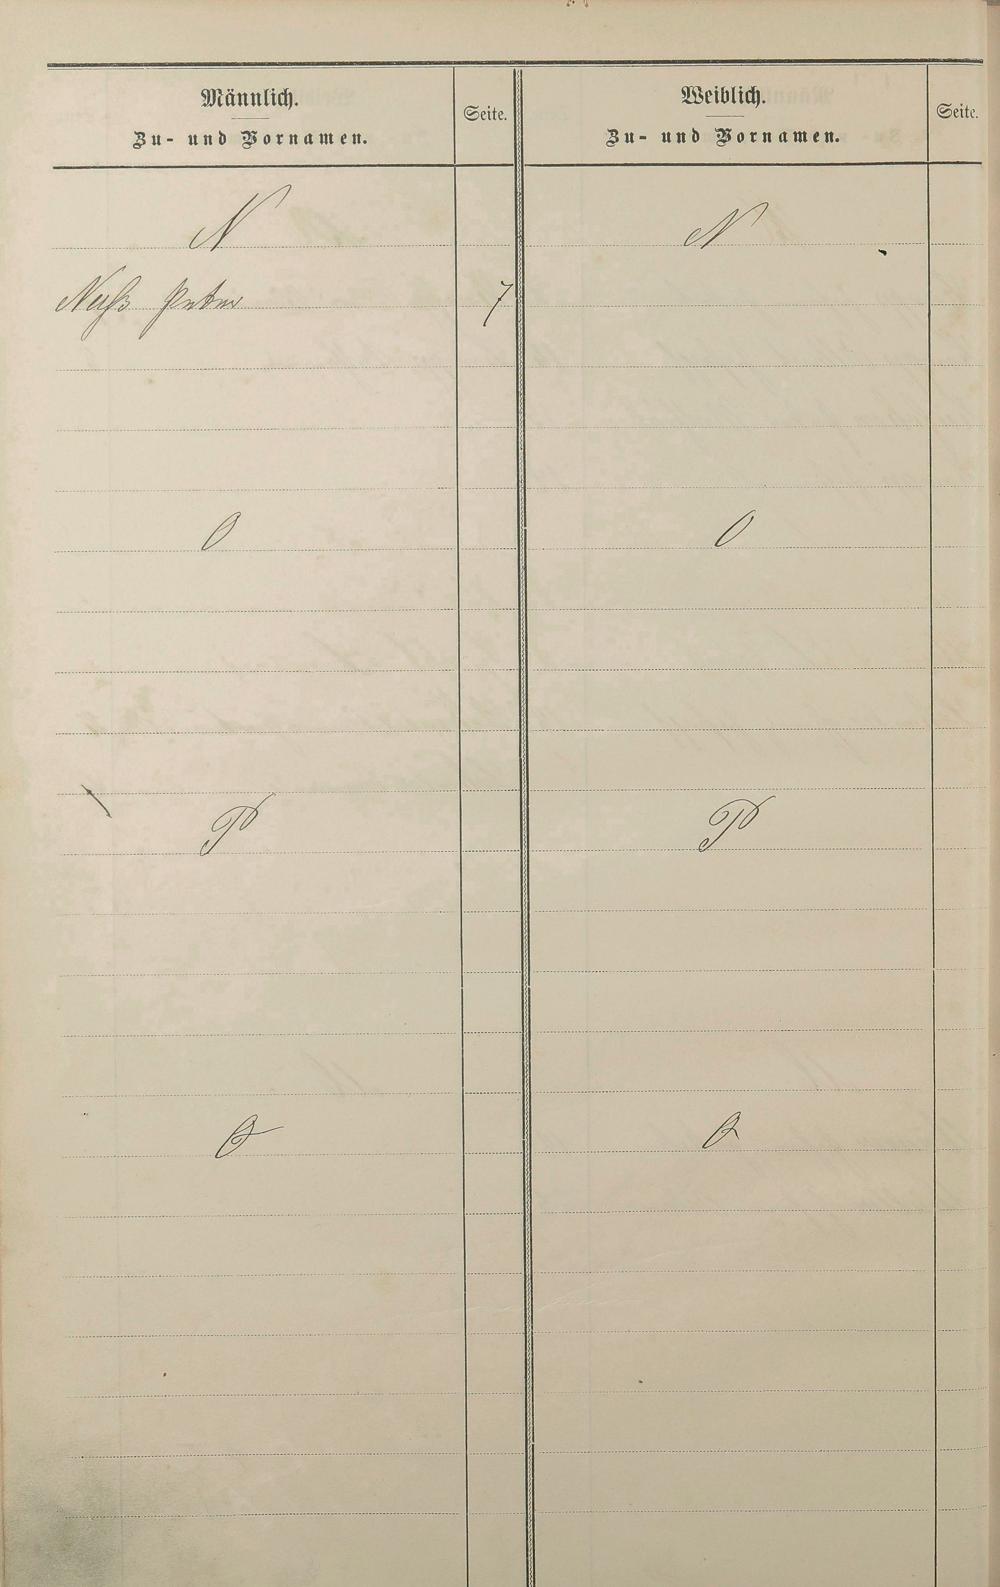 Männlich.
Zu- und Vornamen.
Seite.
Weiblich.
Zu- und Vornamen.
Seite.
N
N
Neuß Peter
7
O
O
P
P
Q
Q